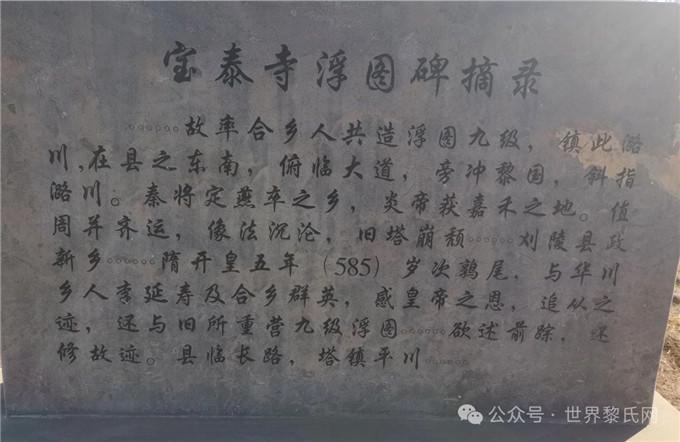 宝泰寺浮图碑摘录
……故率合乡人共造浮图九级，镇此潞
川，在县之东南，俯临大道，旁冲黎国，斜指
潞川。秦将定燕卒之乡，炎帝获嘉禾之地。值
周并齐运，像法沉沦，旧塔崩颓……刈陵县政
新乡……隋开皇五年（585）岁次鹑尾，与华川
乡人李延寿及合乡群英，感皇帝之恩，追从之
迹，还与旧所重营九级浮图……欲述前踪，还
修故迹。县临长路，塔镇平川……
公众号·世界黎氏网